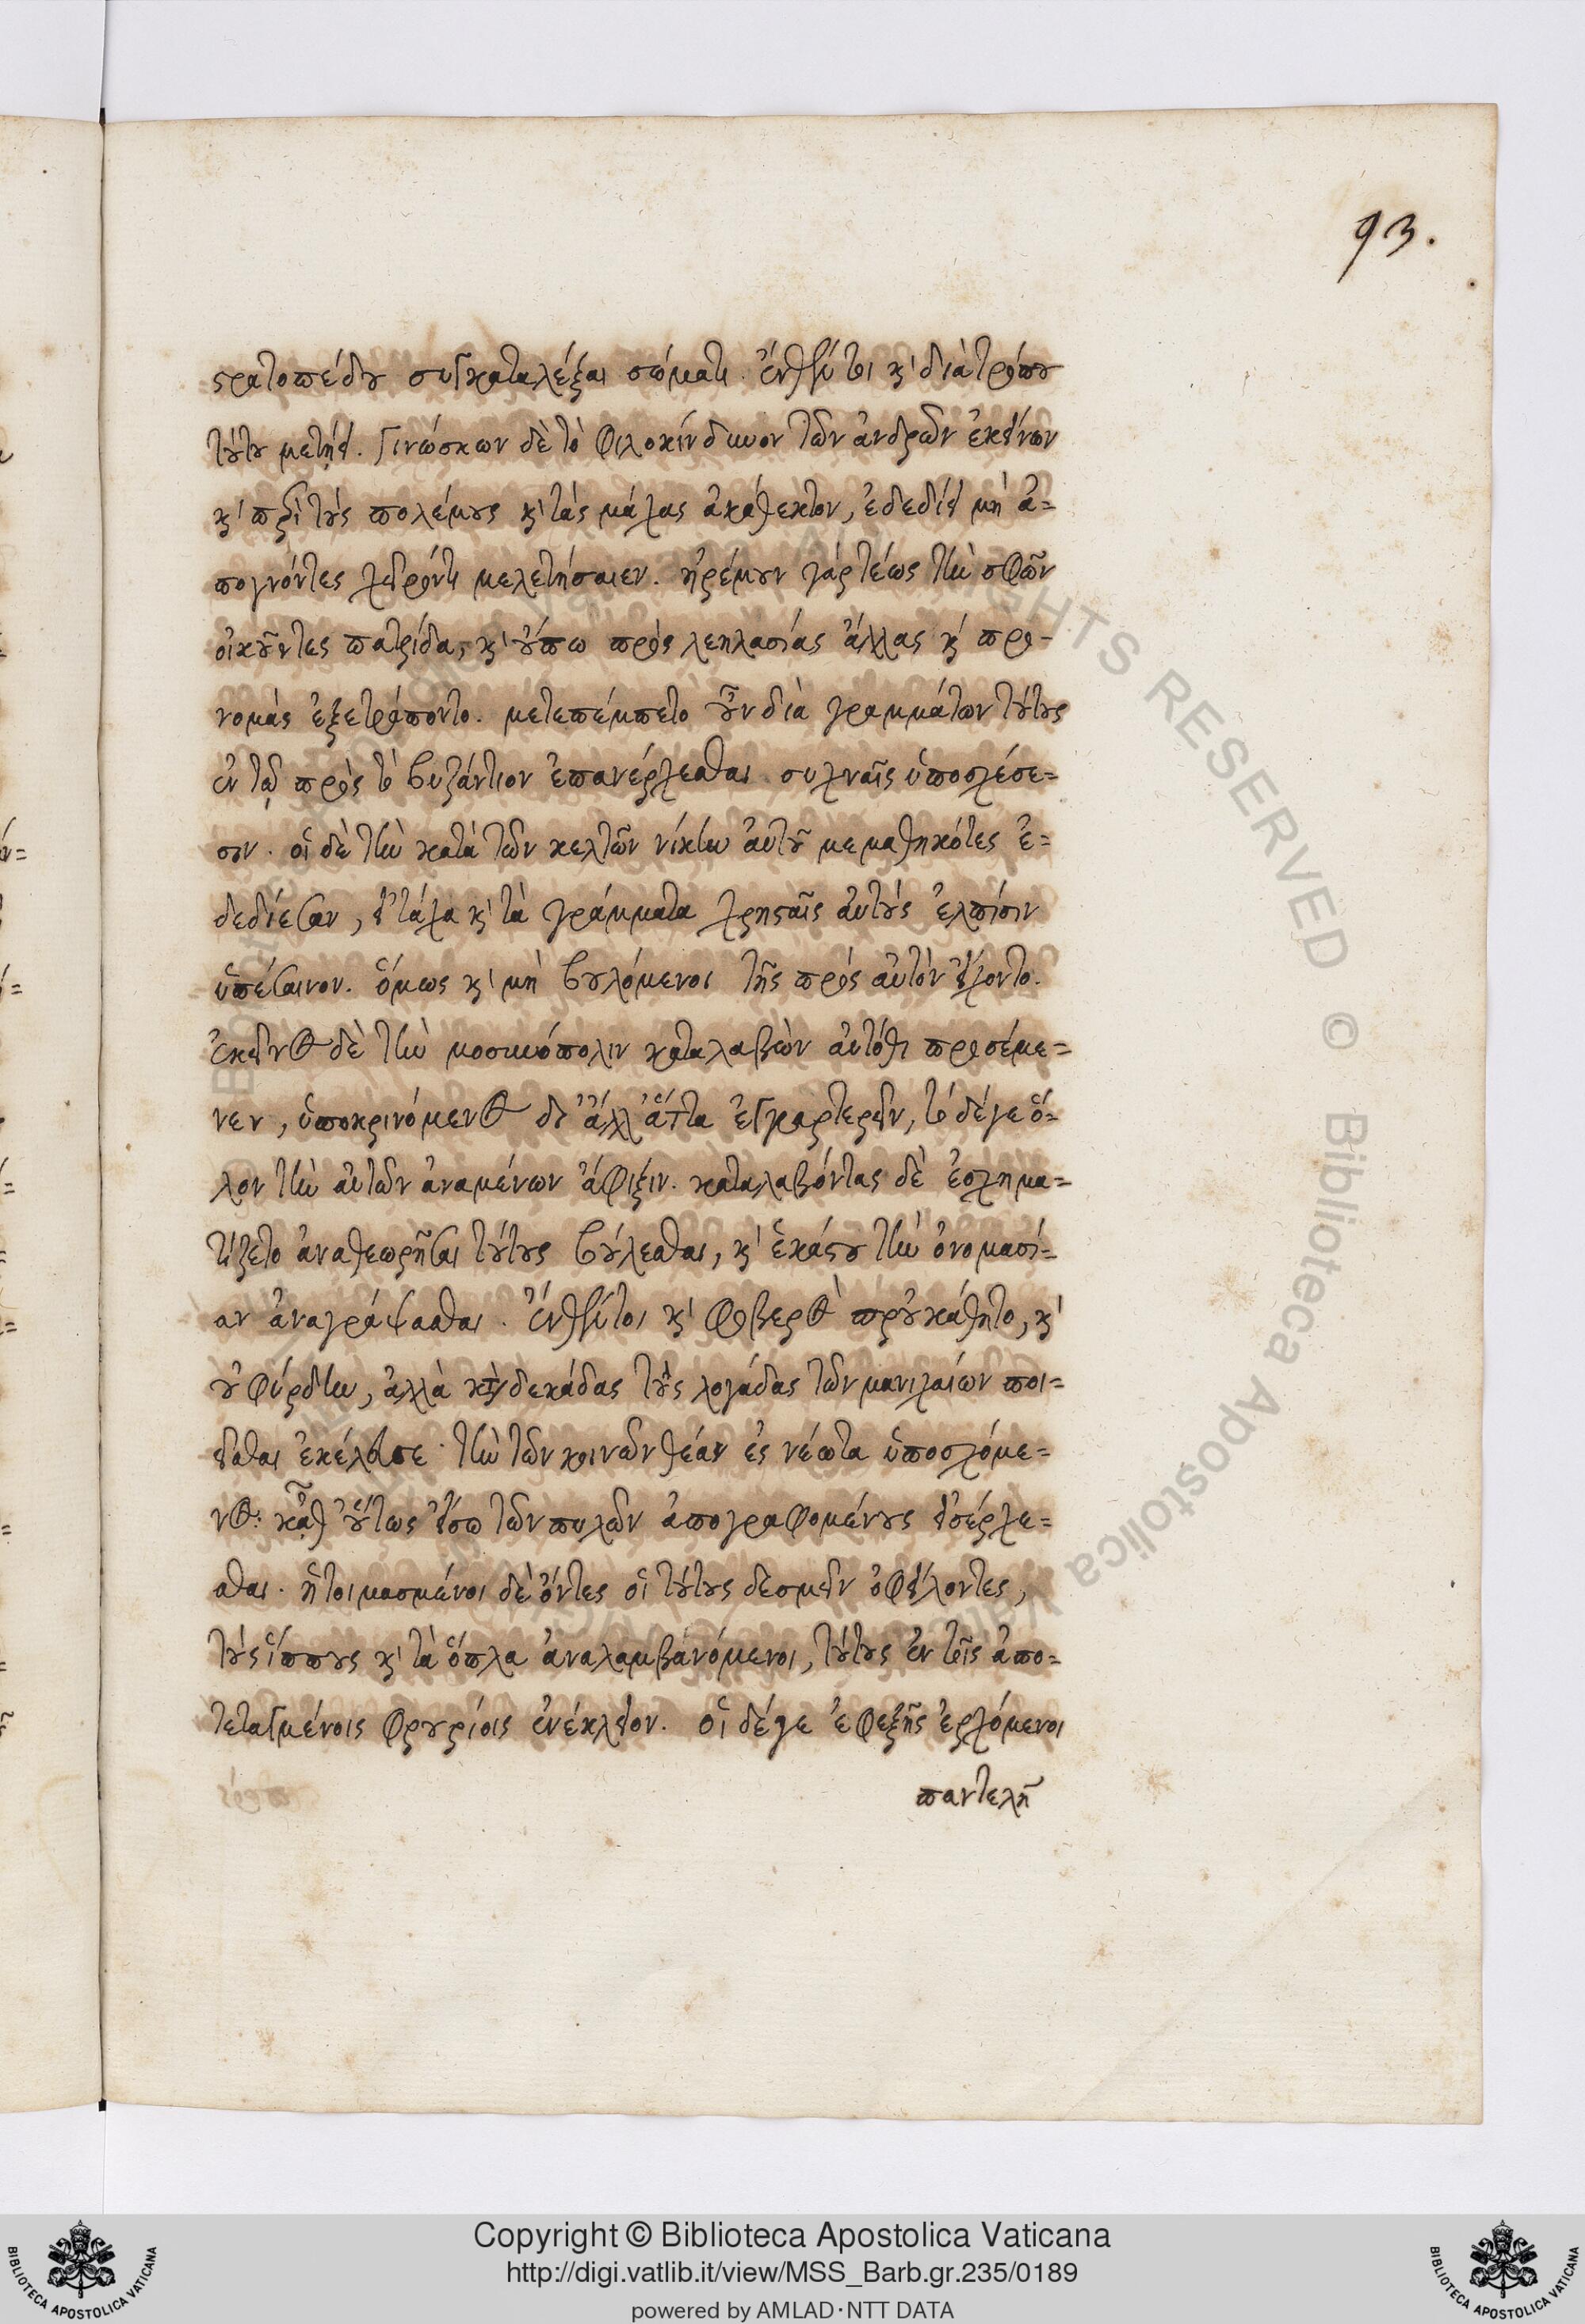 93.
στρατοπέδου συγκαταλέξαι σώματι. ἔνθέν τοι κ' διὰ τρόπου
τούτου μετῄει. Γινώσκων δὲ τὸ φιλοκίνδυνον τῶν ἀνδρῶν ἐκείνων
κ' πρὸς τοὺς πολέμους κ' τὰς μάχας ἀκάθεκτον, ἐδεδίει μὴ ἀ=
πογνόντες χεῖρόν τι μελετήσαιεν. ἠρέμουν γὰρ τέως τὴν σφῶν
οἰκοῦντες πατρίδα, κ' οὔπω πρὸς λεηλασίας ἄλλας κ' προ-
νομὰς ἐξετράποντο. μετεπέμπετο οὖν διὰ γραμμάτων τούτους
ἐν τῷ πρὸς τὸ βυζάντιον ἐπανέρχεσθαι συχναῖς ὑποσχέσε=
σιν. οἱ δὲ τὴν κατὰ τῶν κελτῶν νίκην αὐτοῦ μεμαθηκότες ἐ=
δεδίεσαν, εἰ τάχα κ' τὰ γράμματα χρησταῖς αὐτοὺς ἐλπίσιν
ὑπέσαινον. ὅμως κ' μὴ βουλόμενοι τῆς πρὸς αὐτὸν εἴχοντο.
ἐκεῖνος δὲ τὴν μοσυνόπολιν καταλαβὼν αὐτόθι προσέμε=
νεν, ὑποκρινόμενος δι' ἀλλ' ἄττα ἐγκαρτερεῖν, τὸ δέ γε ὅ=
λον τὴν αὐτῶν ἀναμένων ἄφιξιν. καταλαβόντας δὲ ἐσχημα=
τίζετο ἀναθεωρῆσαι τούτους βούλεσθαι, κ' ἑκάστου τὴν ὀνομασί=
αν ἀναγράψασθαι. ἔνθέν τοι κ' φοβερὸς προὐκάθητο, κ'
οὐ φύρδην, ἀλλὰ κατὰ δεκάδας τοὺς λογάδας τῶν μανιχαίων ποι=
εῖσθαι ἐκέλευσε· τὴν τῶν κοινῶν θέαν ἐς νέωτα ὑποσχόμε=
νος· κᾆθ' οὕτως εἴσω τῶν πυλῶν ἀπογραφομένους εἰσέρχε=
σθαι. ἡτοιμασμένοι δὲ ὄντες οἱ τούτους δεσμεῖν ὀφείλοντες,
τοὺς ἵππους κ' τὰ ὅπλα ἀναλαμβανόμενοι, τούτους ἐν τοῖς ἀπο=
τεταγμένοις φρουρίοις ἐνέκλειον. οἱ δέ γε ἐφεξῆς ἐρχόμενοι
παντελῆ
BIBLIOTECA APOSTOLICA VATICANA
Copyright © Biblioteca Apostolica Vaticana
http://digi.vatlib.it/view/MSS_Barb.gr.235/0189
powered by AMLAD·NTT DATA
BIBLIOTECA APOSTOLICA VATICANA